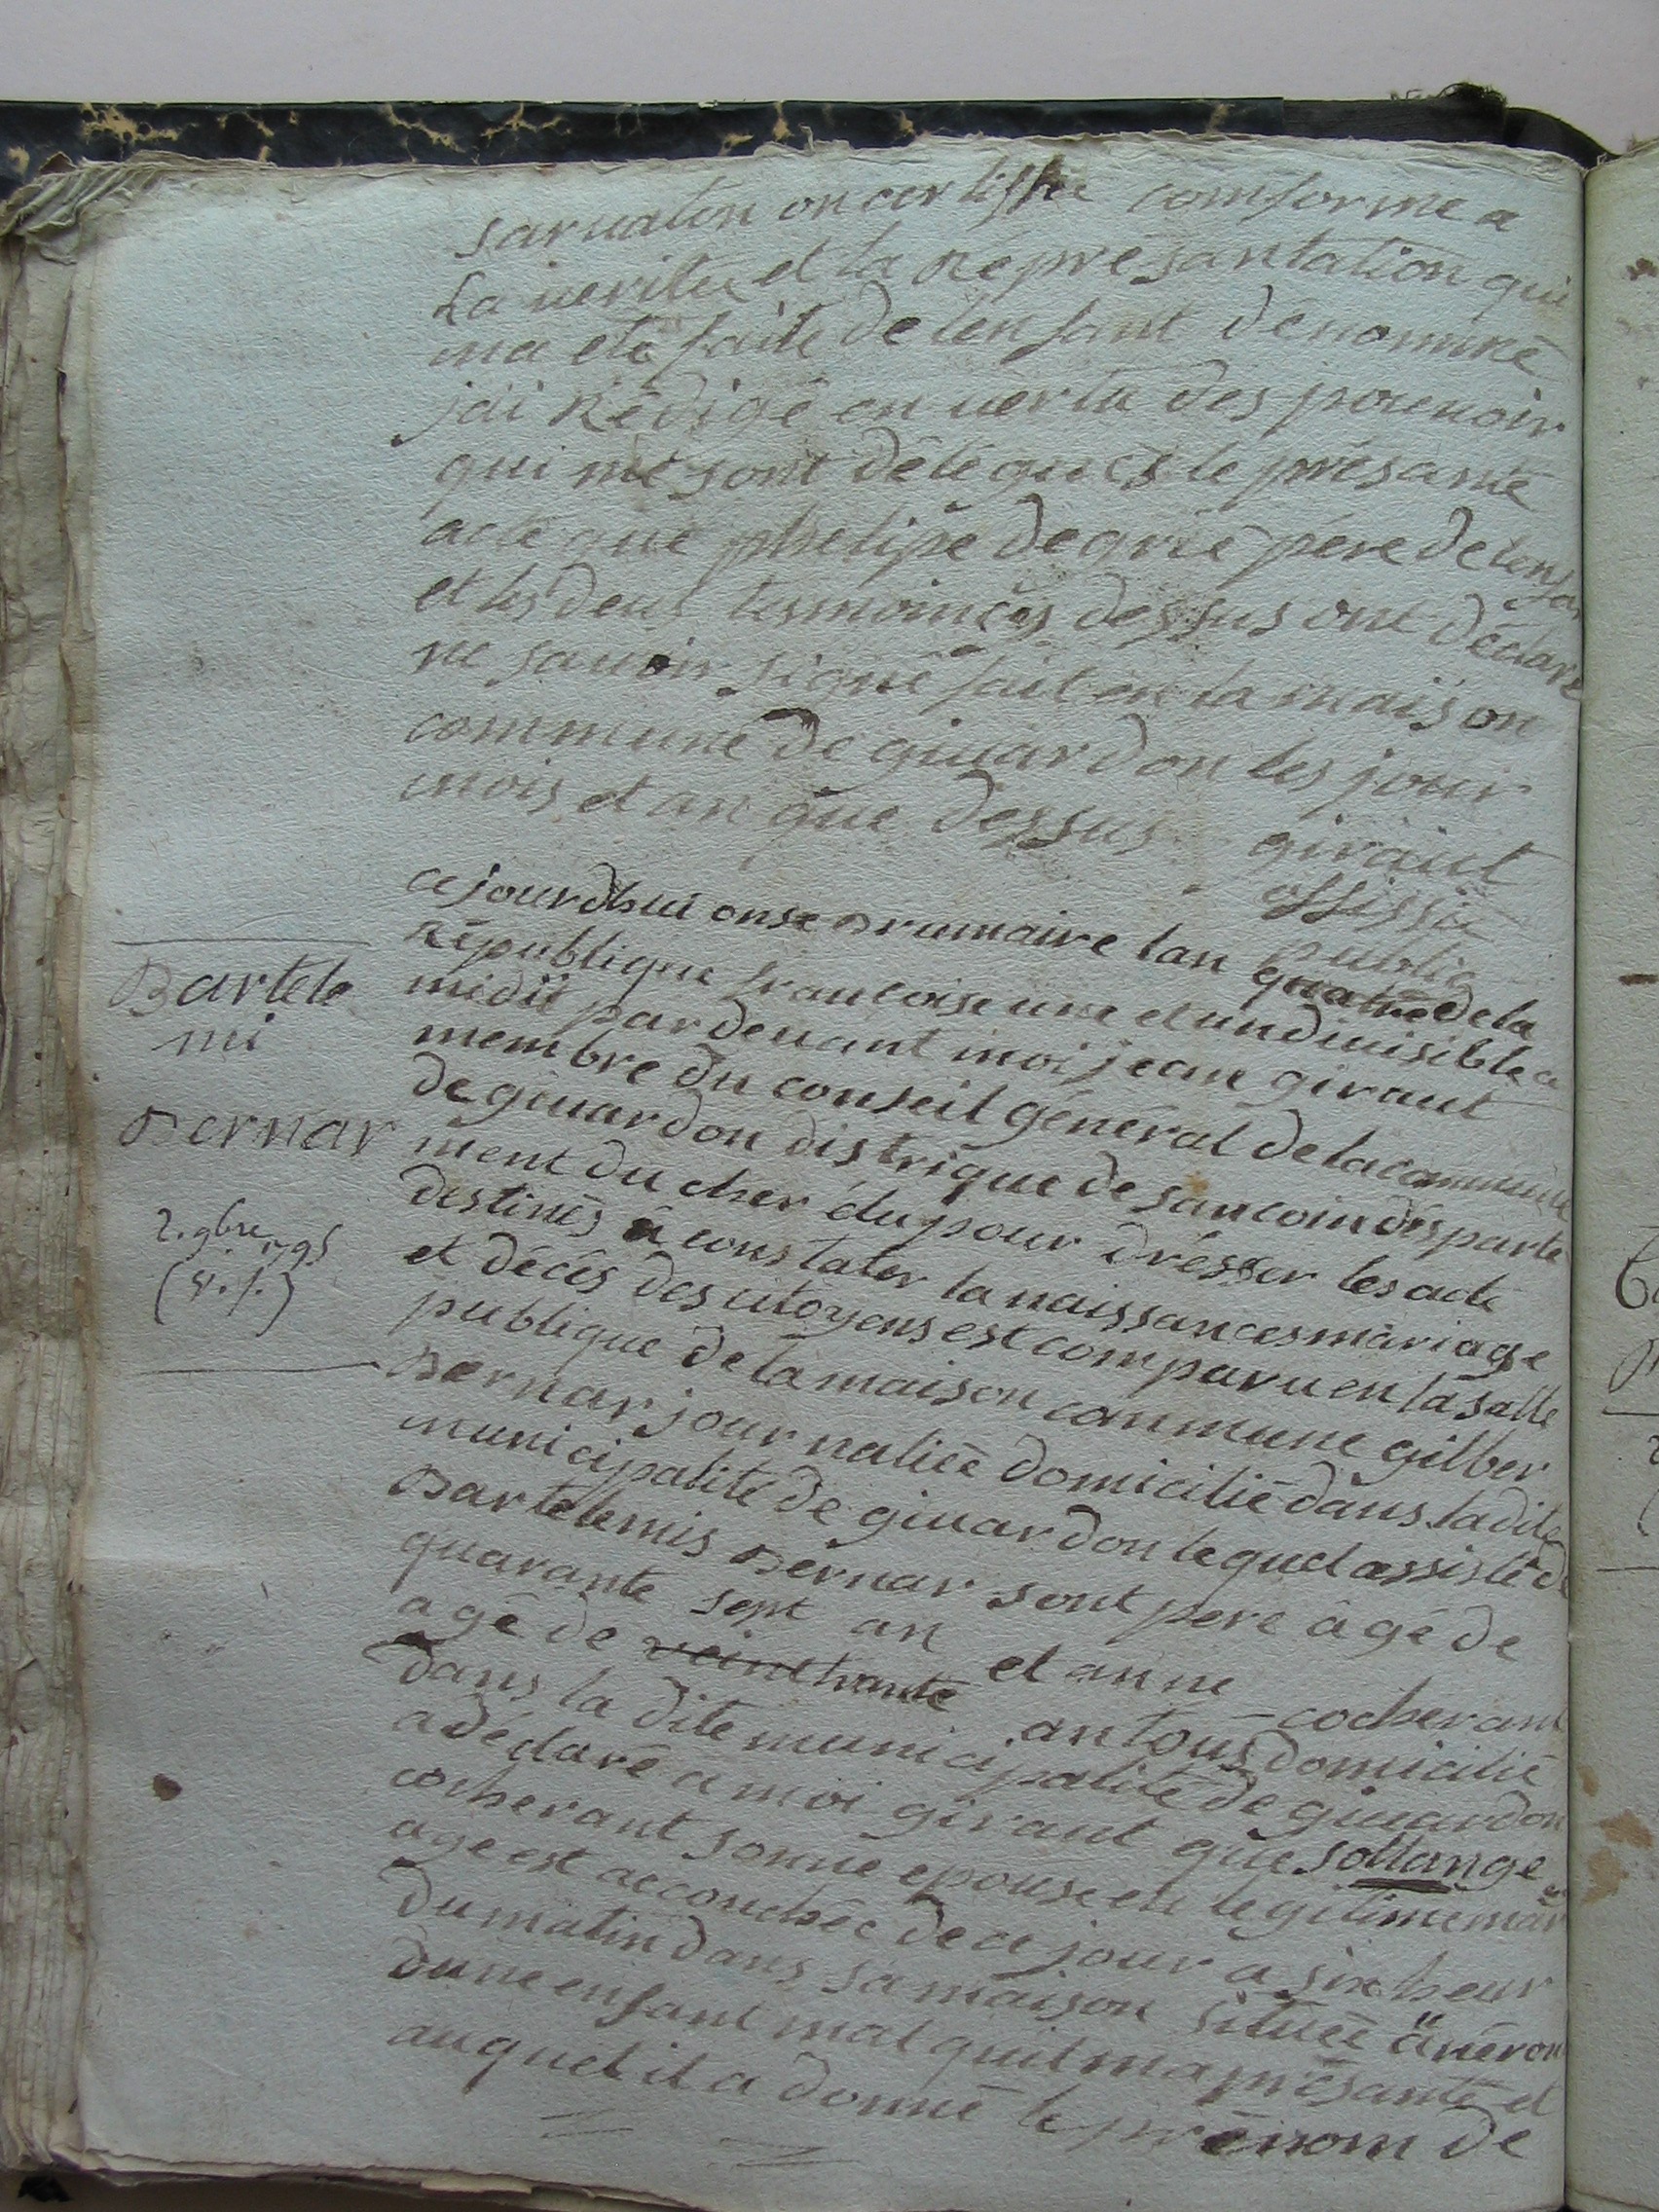 sarvation on certiffié comforme a
La verite et la Représantation qui
ma eté faite de lenfant dénommé
jai Rédigé en vertu des pouvoir
qui me sont délégués le présante
acte que phelipe degrie pére de lenfan
et les deux tesmoin cy dessus ont déclaré
ne savoir signé fait en la maison
commune de givardon les jour
mois et an que dessus giraut
offissié
public
ce jourdhui onse Brumaire lan quatre de la
République francoise une et undivisible a
midii par devant moi jean giraut
membre du conseil général de la commune
de givardon distrique de sancoin departe
ment du cher élu pour dresser les acte
destinés a constater la naissances mariage
et décés des citoyens est comparu en la salle
publique de la maison commune gilber
Bernar journaliee domicilié dans la dite
municipalité de givardon lequel assisté de
Bartelemis Bernar sont pere âgé de
quarante sept an et anne cocherant
agé de an tous domicilié
dans la dite municipalité de givardon
a déclaré a moi giraut que sollange
cocherant sonne epouse etc legitime mari
age est accouchée de ce jour a six heur
du matin dans sa maison situeé a neron
dune enfant mal quil ma présanté et
auquel il a donné le prénom de
Bartele
mi
Bernar
2. 9bre 1795